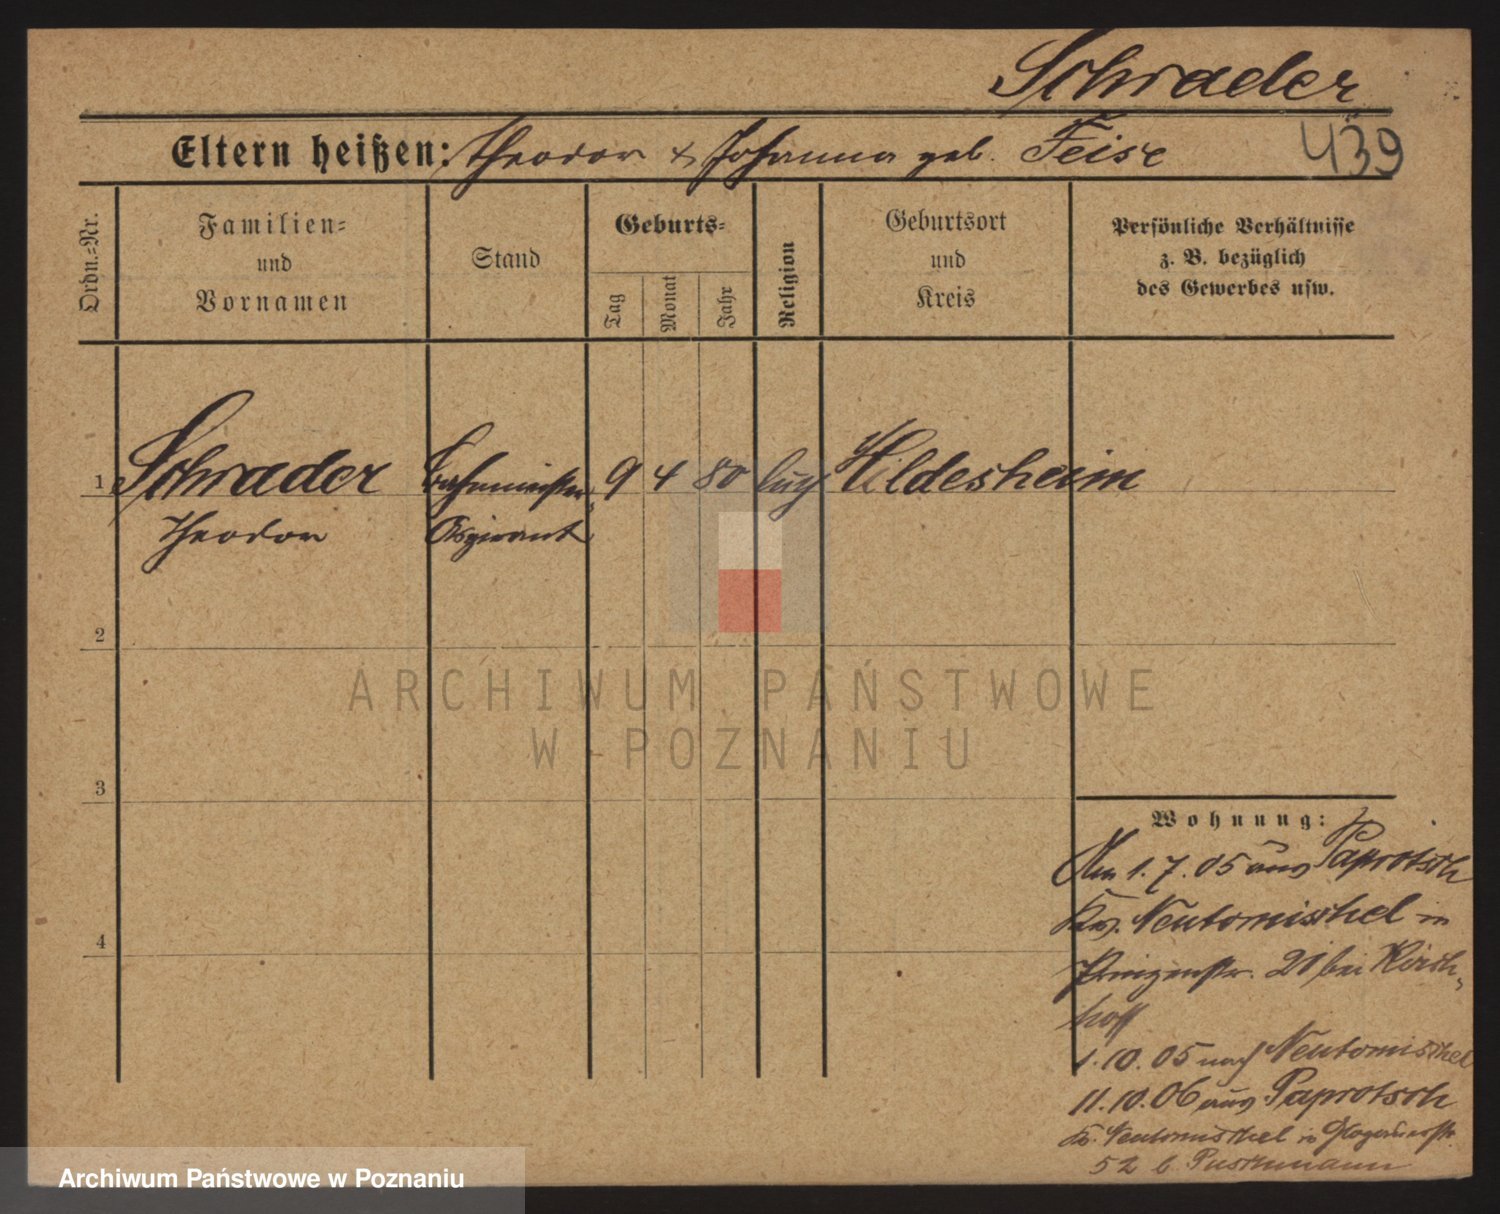 Schrader
439
Eltern heißen: Theodor & Johanna geb. Feise
Ordn.=Nr.
Familien=
und
Vornamen
Stand
Geburts=
Tag
Monat
Jahr
Religion
Geburtsort
und
Kreis
Persönliche Verhältnisse
z. B. bezüglich
des Gewerbes usw.
1 Schrader Bahnmeister= 9 4 80 luth Hildesheim
Theodor Aspirant
2
3
4
ARCHIWUM PAŃSTWOWE
W POZNANIU
Wohnung:
Am 1.7.05 aus Paprotsch
Krs. Neutomischel in
Prinzenstr. 21 bei Kirch=
hoff
1.10.05 nach Neutomischel
11.10.06 aus Paprotsch
Kr. Neutomischel in Glogauerstr
52 b. Puschmann
Archiwum Państwowe w Poznaniu